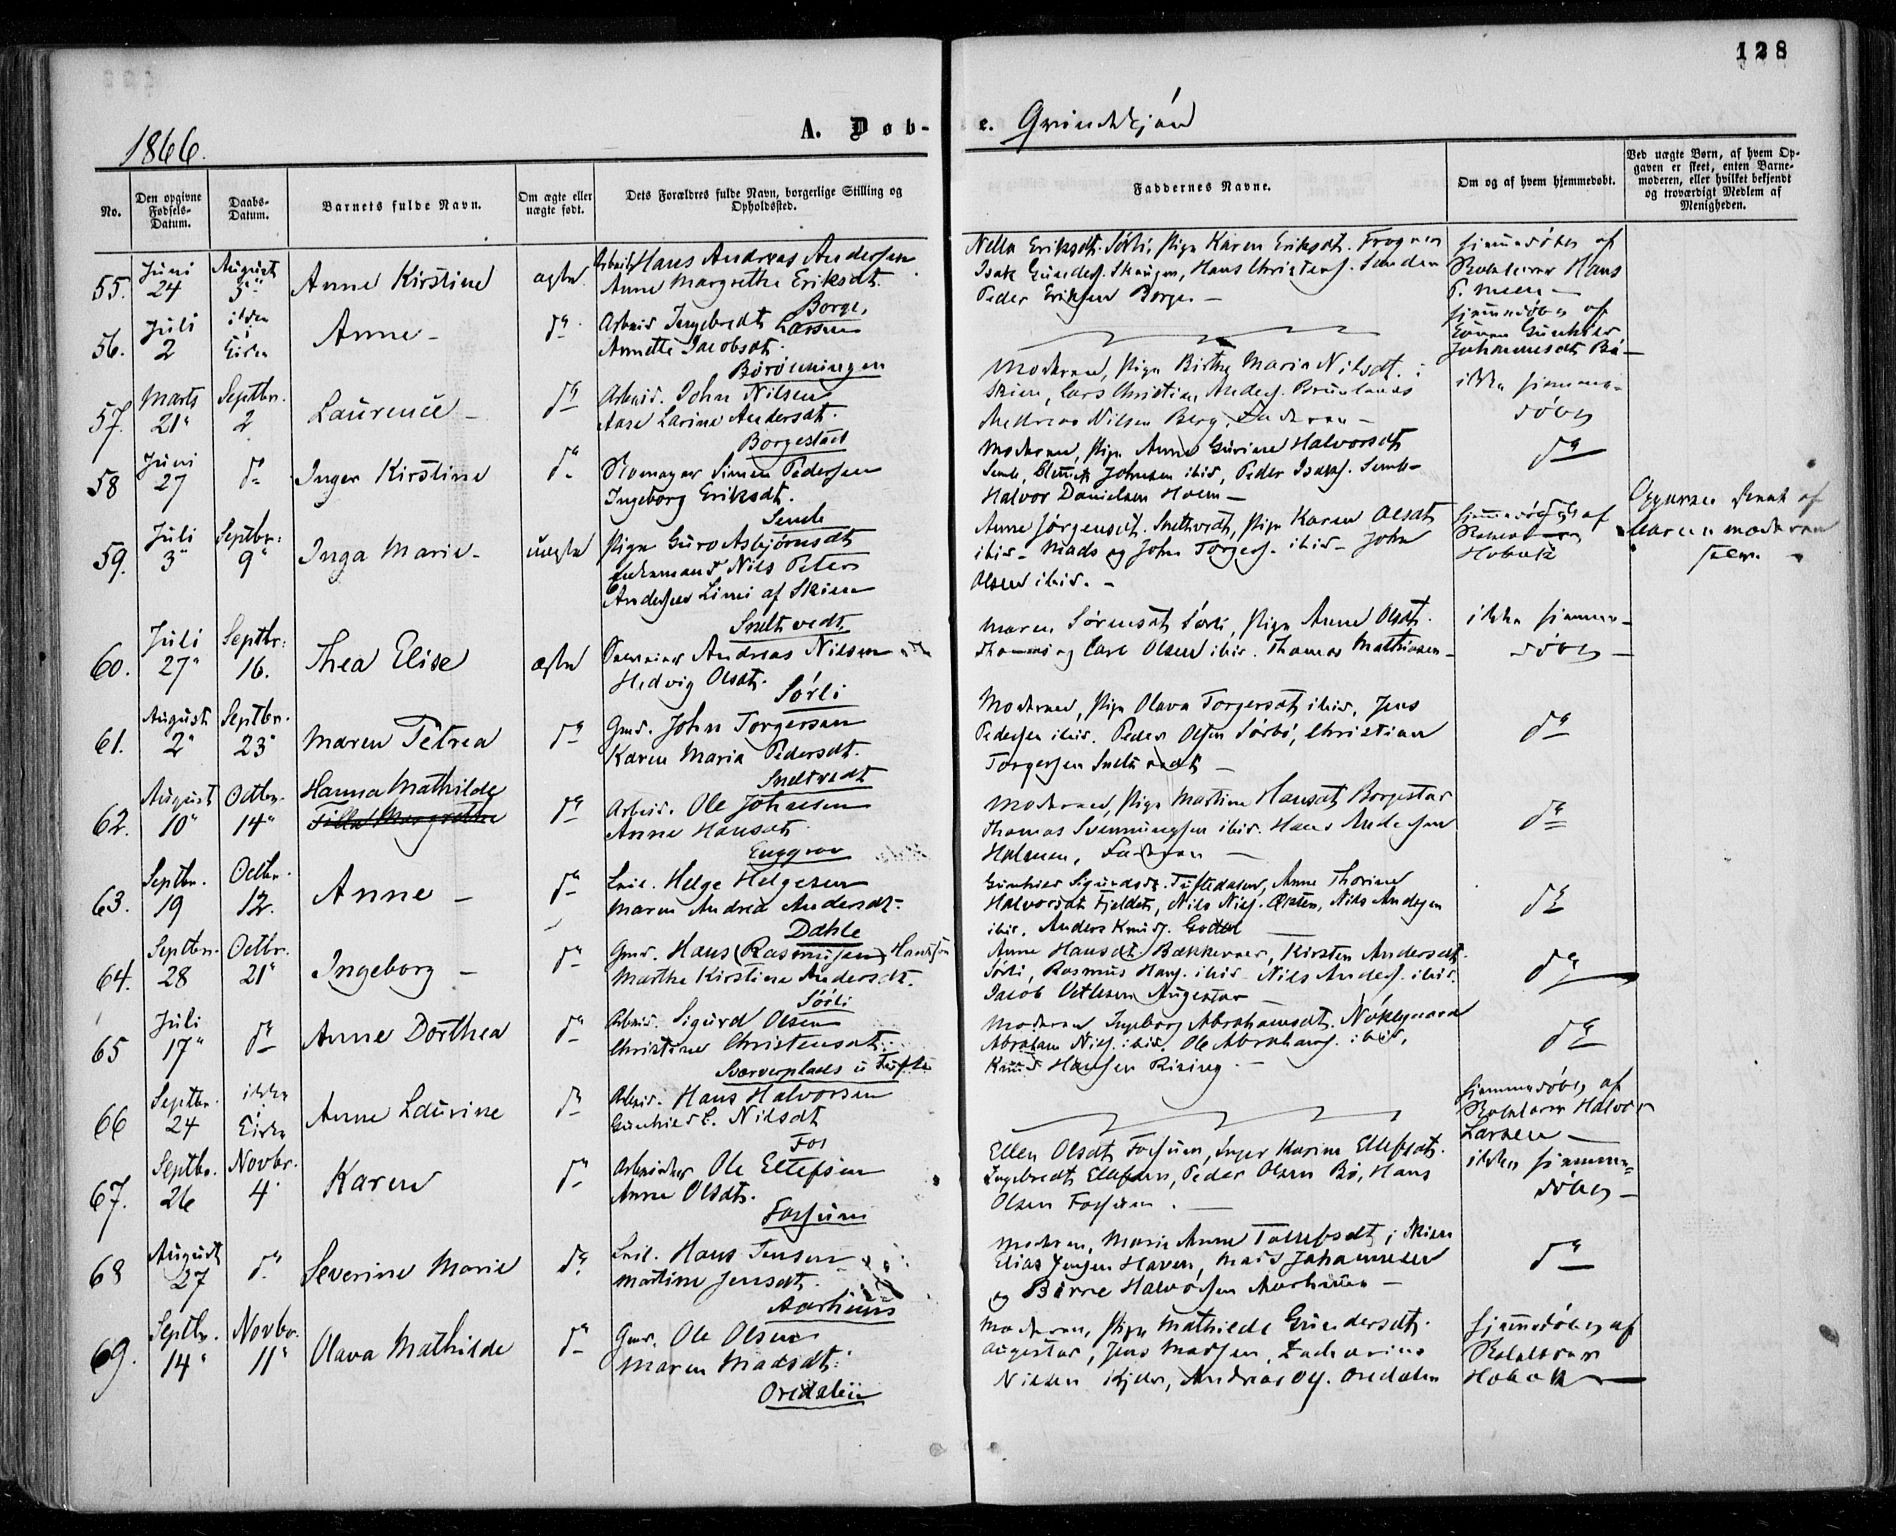 128
1866.
A. Døb-
e. Qvindekjøn
No.
Den opgivne Fødsels-Datum.
Daabs-Datum.
Barnets fulde Navn.
Om ægte eller uægte født.
Dets Forældres fulde Navn, borgerlige Stilling og Opholdssted.
Faddernes Navne.
Om og af hvem hjemmedøbt.
Ved uægte Børn, af hvem Opgaven er skeet, enten Barnemoderen, eller hvilket bekjendt og troværdigt Medlem af Menigheden.
55. Juni 24 August 5" Anne Kirstine ægte
Arbeid. Hans Andreas Andersen
Anne Margrethe Eriksdt.
Borge,
Eriksdt. Sørli, Pige Karen Eriksdt. Frogner
Isak Gunders. Skaugen, Hans Christens.
Peder Eriksen Borge –
hjemmedøbt af
Rolelærer Hans
P.
56. Juli 2 ikke i Kirke Anne – do
Arbeid. Ingebredt Larsen
Annette Jacobsdt.
hjemmedøbt af
Gunhild
Johannesdt Bø –
57. Marts 21" Septbr. 2 Laurence – do
Arbeid. John Nilsen
Aase Larine Andersdt.
Borgestad
Moderen, Pige Birthe Maria Nilsdt. i
Skien, Lars Christian Anders.
Andreas Nilsen Berg, Faderen –
ikke hjemme-
døbt
58 Juni 27 do Inger Kirstine do
Simen Pedersen
Ingeborg Eriksdt.
Semb
Moderen, Pige Anne Gurine Halvorsdt
Semb, Johnsen ibid, Peder Isaks. Semb –
Halvor Danielsen Holm –
do
59. Juli 3" Septbr: 9" Inga Marie – uægte
Pige Guro Asbjørnsdt
Nils Peter
Andersen af Skien
Sneltvedt
Anne Jørgensdt. Sneltvedt, Pige Karen Olsdt
ibid – Mads og John Torgers. ibid – John
Olsen ibid. –
hjemmedøbt af
Hobæk
Opgaven skeet af
Barnemoderen
selv.
60. Juli 27" Septbr: 16. Thea Elise ægte
Andreas Nilsen
Hedvig Olsdt.
Sørli
Maren Sørensdt Sørli, Pige Anne Olsdt.
og Carl Olsen ibid. Thomas Mathiasen –
ikke hjemme-
døbt –
61. August 2" Septbr. 23" Maren Petrea do
Gmd. John Torgersen
Karen Maria Pedersdt.
Sneltvedt
Moderen, Pige Olava Torgersdt ibid, Jens
Pedersen ibid. Peder Olsen Sørbø, Christian
Torgersen Sneltvedt –
do
62. August 10" Octbr. 14" Hanna Mathilde
do
Arbeid. Ole Johnsen
Anne Hansdt.
Enggrav
Moderen, Pige Martine Hansdt Borgestad
Thomas Svenningsen ibid. Hans Andersen
Holmen, Faderen –
do
63. Septbr. 19 Octbr. Anne – do
Helge Helgesen
Maren Andrea Andersdt.
Dahle
Gunhild Sigurdsdt. Tuftedalen, Anne Thorine
Halvorsdt Fjeldet, Nils Niels. Nils Andersen
ibid. Anders Knuds.
do
64. Septbr. 28 Octbr. 21" Ingeborg – do
Gmd. Hans (Rasmusen) Hansen
Marthe Kirstine Andersdt.
Sørli
Anne Hansdt Bækkevar, Kirsten Andersdt.
Sørli, Rasmus Hans. ibid. Nils Anders. ibid.
Jacob Augestad –
do
65 Juli 17" do Anne Dorthea do
Arbeid. Sigurd Olsen
Christine Christensdt.
Sververplads u Tufte
Moderen, Ingeborg Abrahamsdt. Nøklegaard
Abraham Niels. ibid. Ole Abrahams. ibid,
Knud Hansen Rising –
do
66 Septbr. 24 ikke Kirke Anne Laurine do
Arbeid. Hans Halvorsen
Nilsdt
Fos
hjemmedøbt af
Rolelærer Halvor
Larsen –
67. Septbr. 26 Novbr. 4 Karen do
Arbeider Ole Ellefsen
Anne Olsdt.
Fossum
Ellen Olsdt Fossum, Inger Karine Ellefsdt.
Ingebredt Ellefsen, Peder Olsen Bø, Hans
Olsen Fossum. –
ikke hjemme-
døbt –
68 August 27 do Severine Marie do
Hans Jensen
Martine Jensdt.
Aarhuus
Moderen, Marie Anne i Skien
Elias Jensen Haven, Mads Johannesen
og Børre Halvorsen Aarhuus –
do
69. Septbr. 14" Novbr. 11" Olava Mathilde do
Gmd. Ole Olsen
Maren Madsdt.
Oredalen
Moderen, Pige Mathilde Gundersdt.
Augestad, Jens Madsen, Zacharias
Nilsen Andreas Ols. Oredalen
hjemmedøbt af
Rolelærer
Hobæk –